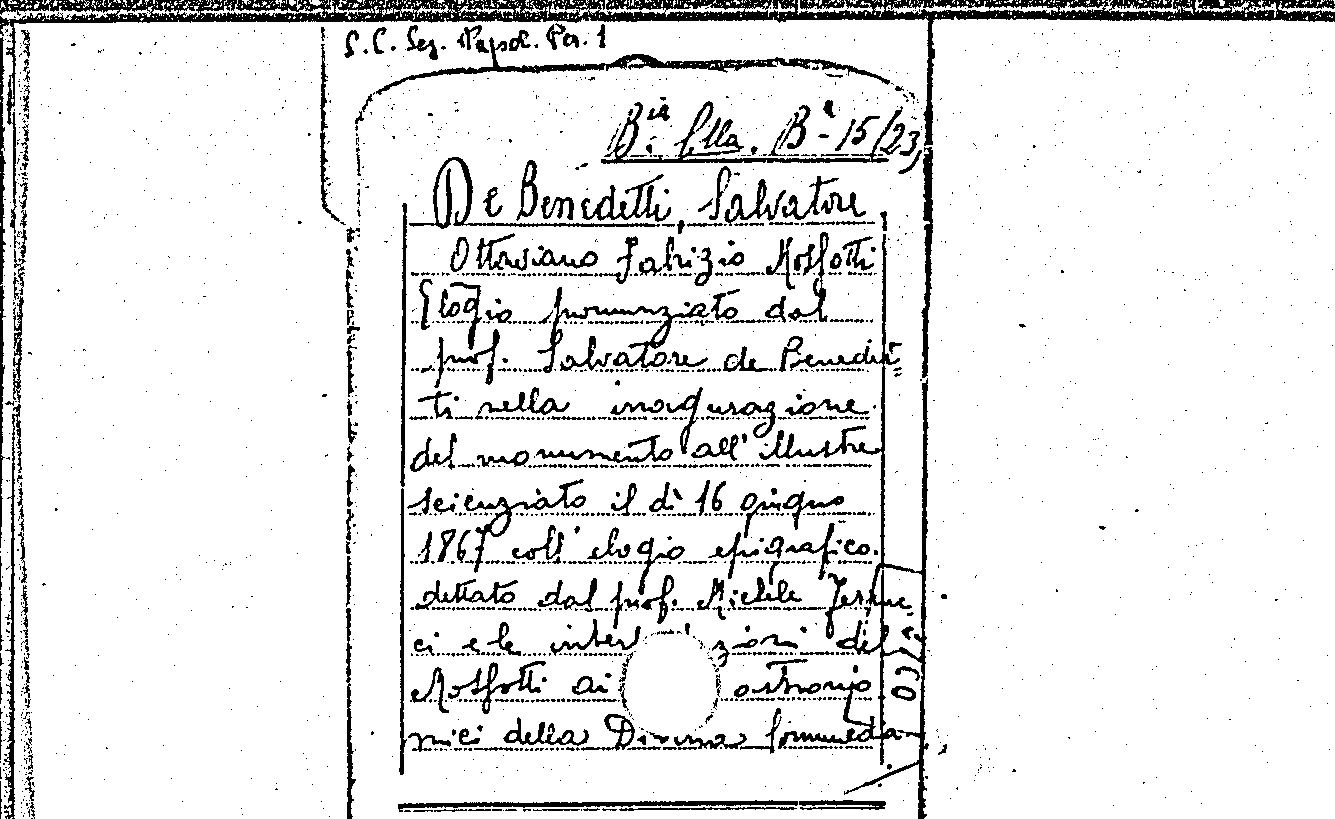 S.C. Sez. Napol. Per. 1
B.ia Llla. B.a - 15/23,
De Benedetti, Salvatore
Ottaviano Fabrizio Mosfotti
Elogio pronunziato dal
prof. Salvatore de Benedet=
ti nella inaugurazione
del monumento all'illustre
scienziato il dì 16 giugno
1867 coll'elogio epigrafico
dettato dal prof. Michele Ferruc,
ci e le inter zioni del
Mosfotti ai astrono
mici della Divina Commedia